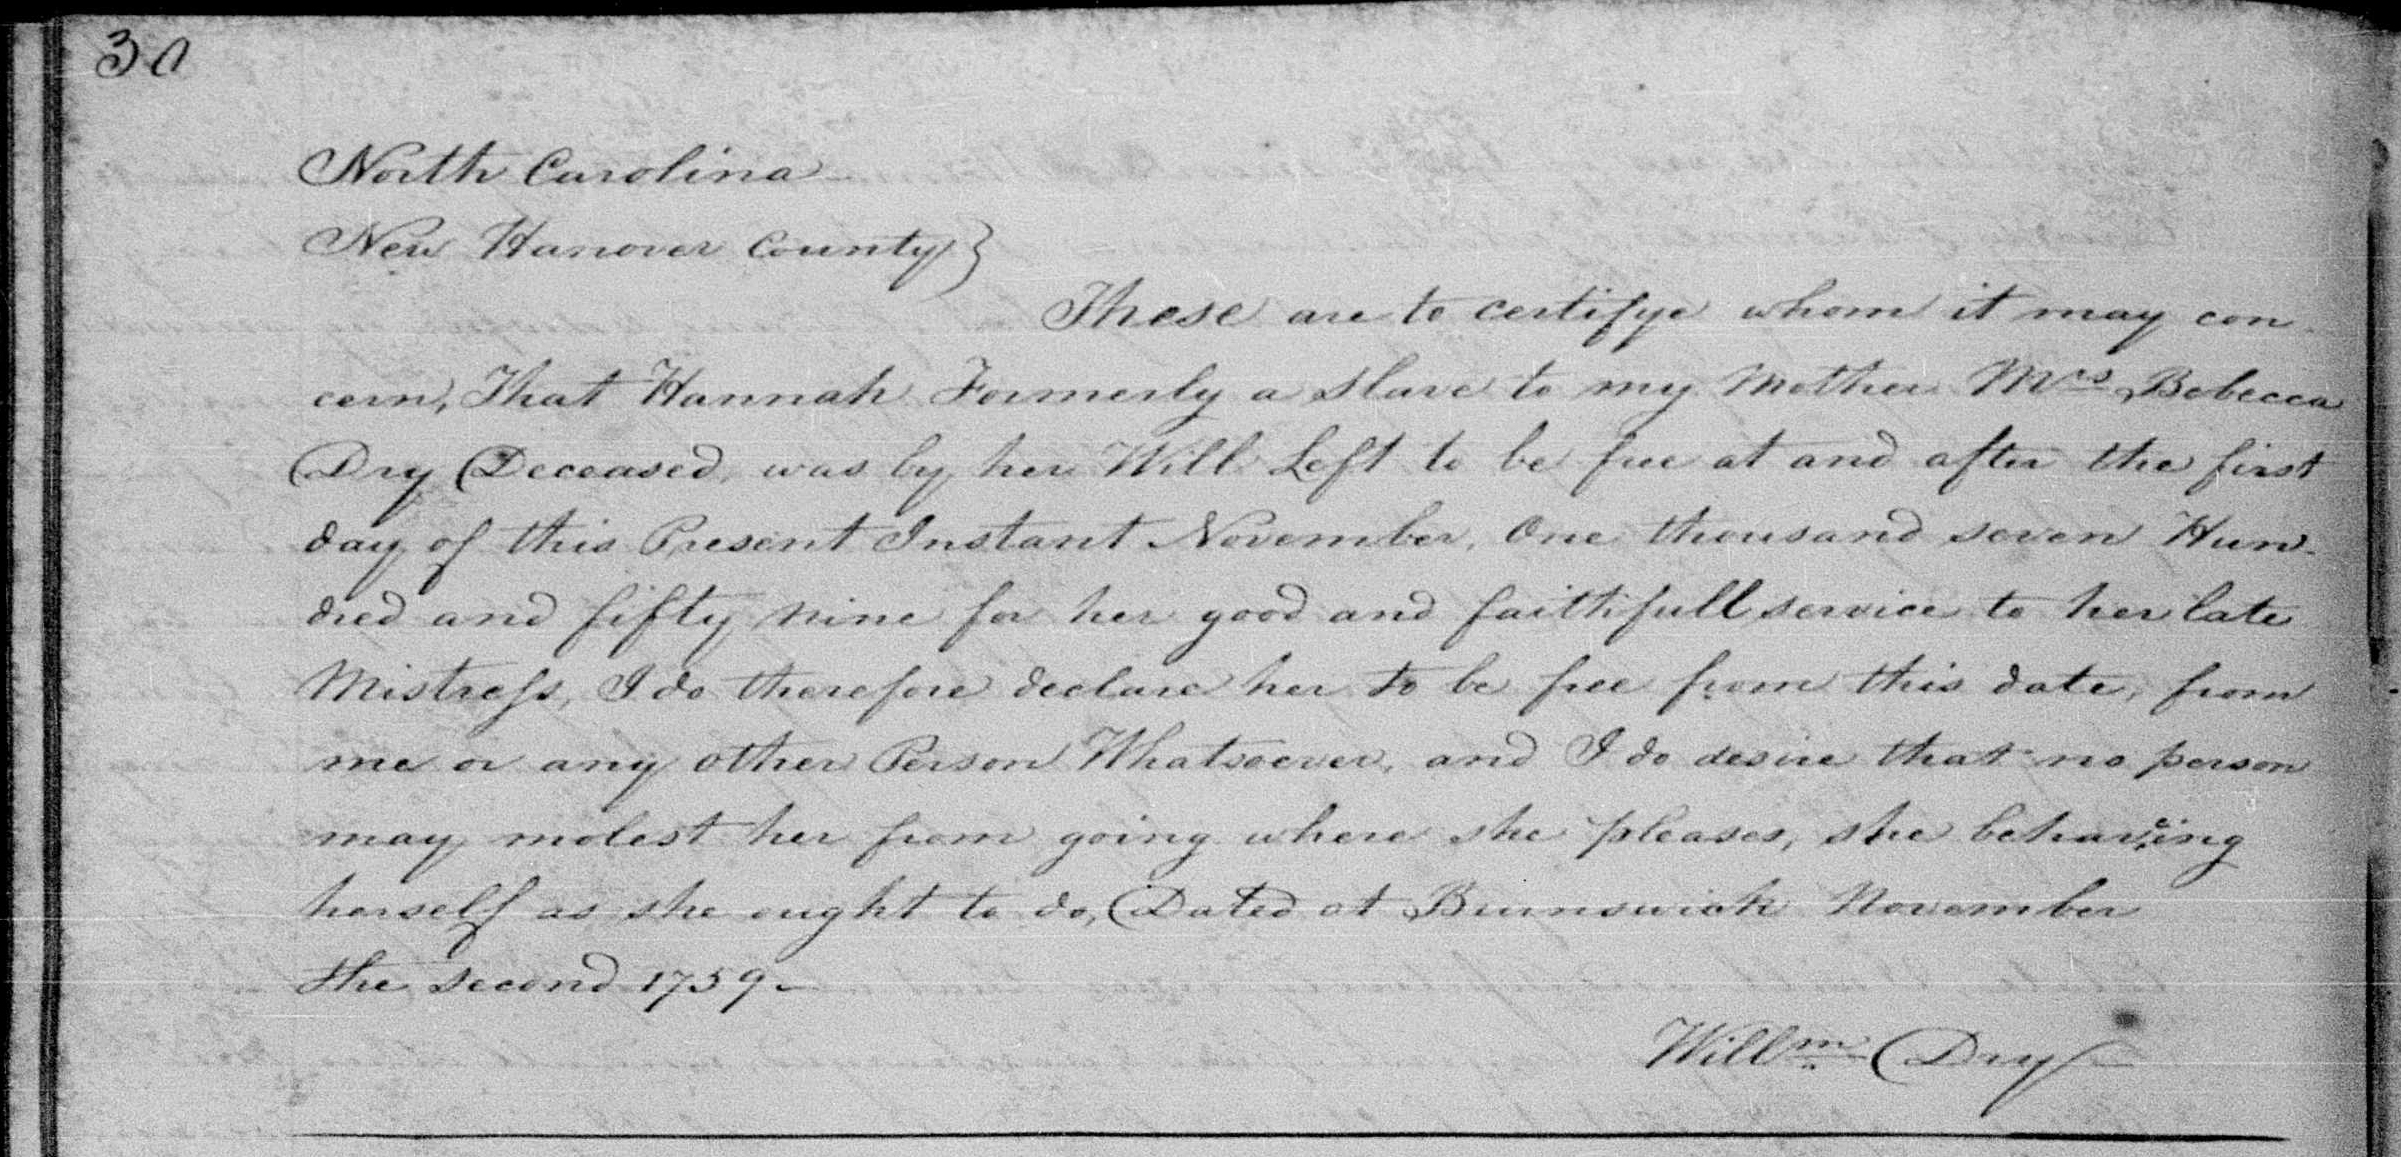 30
North Carolina
New Hanover County }
These are to certifye whom it may con
cern, That Hannah Formerly a slave to my Mother Mrs Bebecca
Dry Deceased, was by her Will Left to be free at and after the first
day of this Present Instant November, One thousand seven Hun-
dred and fifty nine for her good and faithfull service to her late
Mistress, I do therefore declare her to be free from this date, from
me or any other Person Whatsoever, and I do desire that no person
may molest her from going where she pleases, she behaveing
herself as she ought to do, Dated at Brunswick November
the second 1759-
Willm Dry